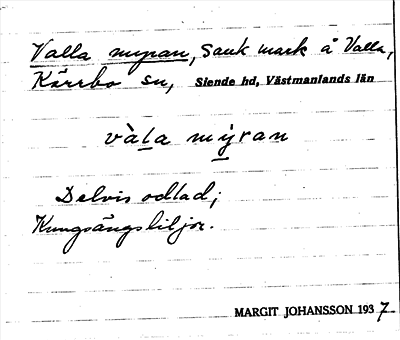 Valla myran, Sank mark å Valla,
Kärrbo sn, Siende hd, Västmanlands län
vàla mỳran
Delvis odlad;
Kungsängsliljor.
MARGIT JOHANSSON 1937